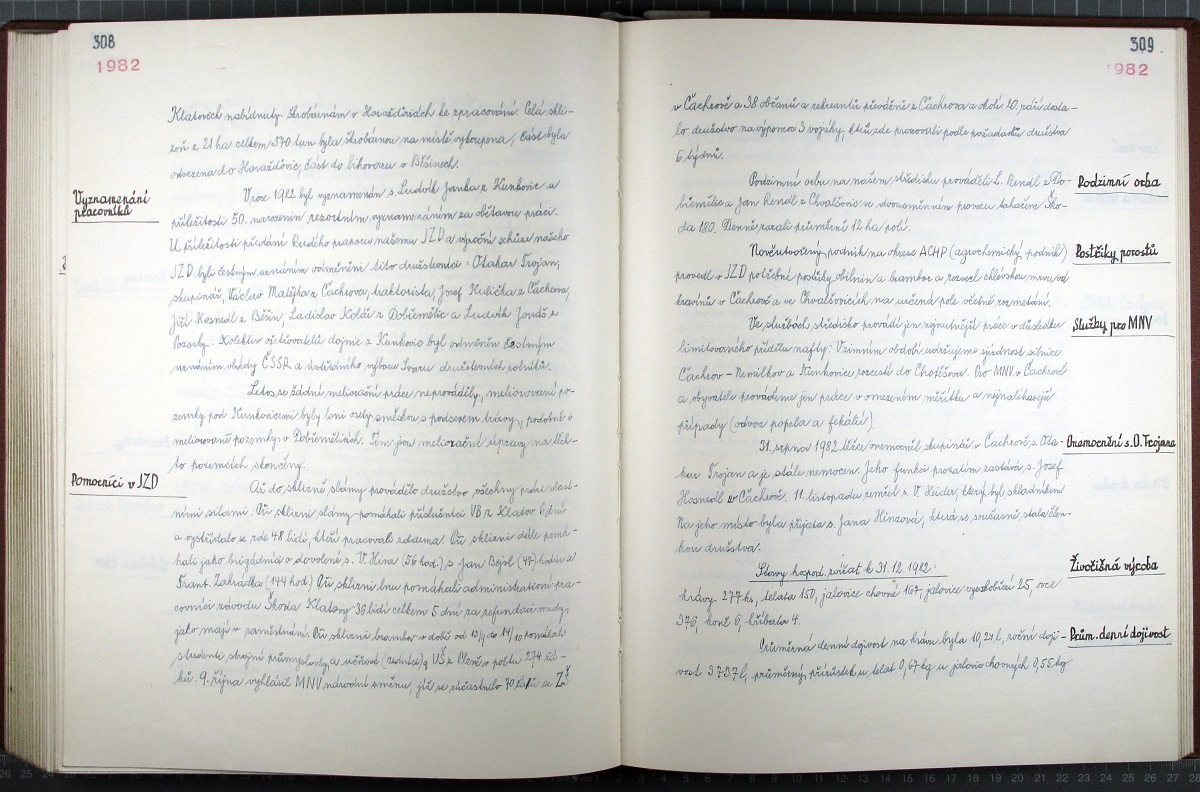 308
1982
Klatovech nabídnuty Škrobárnám v Horažďovicích ke zpracování. Celá skli-
zeň z 21 ha celkem 370 tun byla škrobárnou na místě vykoupena, část byla
odvezena do Horažďovic, část do lihovaru v Běšinech.
Vyznamenání
pracovníků
V roce 1982 byl vyznamenán s. Ludvík Janka z Kunkovic u
příležitosti 50. narozenin rezortním vyznamenáním za obětavou práci.
U příležitosti předání Rudého praporu našemu JZD a výroční schůze našeho
JZD byli čestným uznáním odměněni tito družstevníci: Otakar Trojan,
skupinář, Václav Matějka z Čachrova, traktorista, Josef Kubička z Čachrova,
Jiří Hosnedl z Běšin, Ladislav Kolář z Dobřemilic a Ludvík Jordš z
Kolektiv ošetřovatelů dojnic z Kunkovic byl odměněn čestným
uznáním vlády ČSSR a ústředního výboru Svazu družstevních rolníků.
Letos se žádné meliorační práce neprováděly, meliorované po-
zemky pod Kunkovicemi byly loni osety směskou s podsevem trávy, podobně i
meliorované pozemky v Dobřemilicích. Tím jsou meliorační úpravy na těch-
to pozemcích skončeny.
Pomocníci v JZD
Až do sklizně slámy provádělo družstvo všechny práce vlast-
ními silami. Při sklizni slámy pomáhali příslušníci VB z Klatov 6 dní
a vystřídalo se zde 48 lidí, kteří pracovali zdarma. Při sklizni dále pomá-
hali jako brigádníci o dovolené s. V. Hinz (56 hod.), s Jan Bejvl (47) hodin a
Frant. Zahrádka (144 hod.) Při sklizni lnu pomáhali administrativní pra-
covníci závodu Škoda Klatovy 36 lidí celkem 5 dní za refundaci mzdy,
jako mají v zaměstnání. Při sklizni brambor v době od 13/9 do 14/10 pomáhali
studenti strojní průmyslovky a učňové (zedníci) z UŠ z v počtu 274 žá-
ků. 9. října vyhlásil MNV národní směnu, jíž se zúčastnilo 70 žáků ze ZŠ
309
1982
v Čachrově a 38 občanů a rekreantů převážně z Čachrova a okolí. 20. září dosta-
lo družstvo na výpomoc 3 vojáky, kteří zde pracovali podle požadavků družstva
6 týdnů.
Podzimní orba
Podzimní orbu na našem středisku prováděli L. Rendl z Do-
břemilic a Jan Rendl z Chvalšovic ve dvousměnném provozu tahačem Ško-
da 180. Denně zorali průměrně 12 ha polí.
Postřiky porostů
Nověutvořený podnik na okrese ACHP (agrochemický podnik)
provedl v JZD potřebné postřiky obilnin a brambor a rozvezl chlévskou mrvu od
kravínů v Čachrově a ve Chvalšovicích na určená pole včetně rozmetání.
Služby pro MNV
Ve službách středisko provádí jen nejnutnější práce v důsledku
limitovaného přídělu nafty. V zimním období udržujeme sjízdnost silnice
Čachrov – Nemilkov a Kunkovice rozcestí do Chotěšova. Pro MNV v Čachrově
a obyvatele provádíme jen práce v omezeném měřítku a nejnaléhavější
případy (odvoz popela a fekálií).
Onemocnění s. O. Trojana
31. srpna 1982 těžce onemocněl skupinář v Čachrově, s. Ota-
kar Trojan a je stále nemocen. Jeho funkci prozatím zastává s. Josef
Hosnedl v Čachrově. 11. listopadu zemřel s. V. Heider, který byl skladníkem
Na jeho místo byla přijata s. Jana Hinzová, která se současně stala člen-
kou družstva.
Živočišná výroba
Stavy hospod. zvířat k 31. 12. 1982:
krávy 277 ks, telata 150, jalovice chovné 167, jalovice vysokobřezí 25, ovce
376, koně 6, hříbata 4.
Prům. denní dojivost
Průměrná denní dojivost na krávu byla 10,24 l, roční doji-
vost 3737 l, průměrný přírůstek u telat 0,67 kg u jalovic chovných 0,55 kg